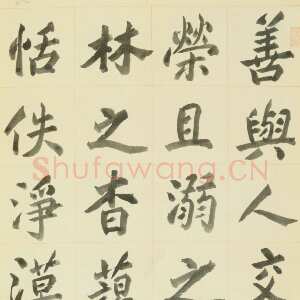 善與人交
榮且溺之
林之杳藹
恬佚淨漠
Shufawang.CN